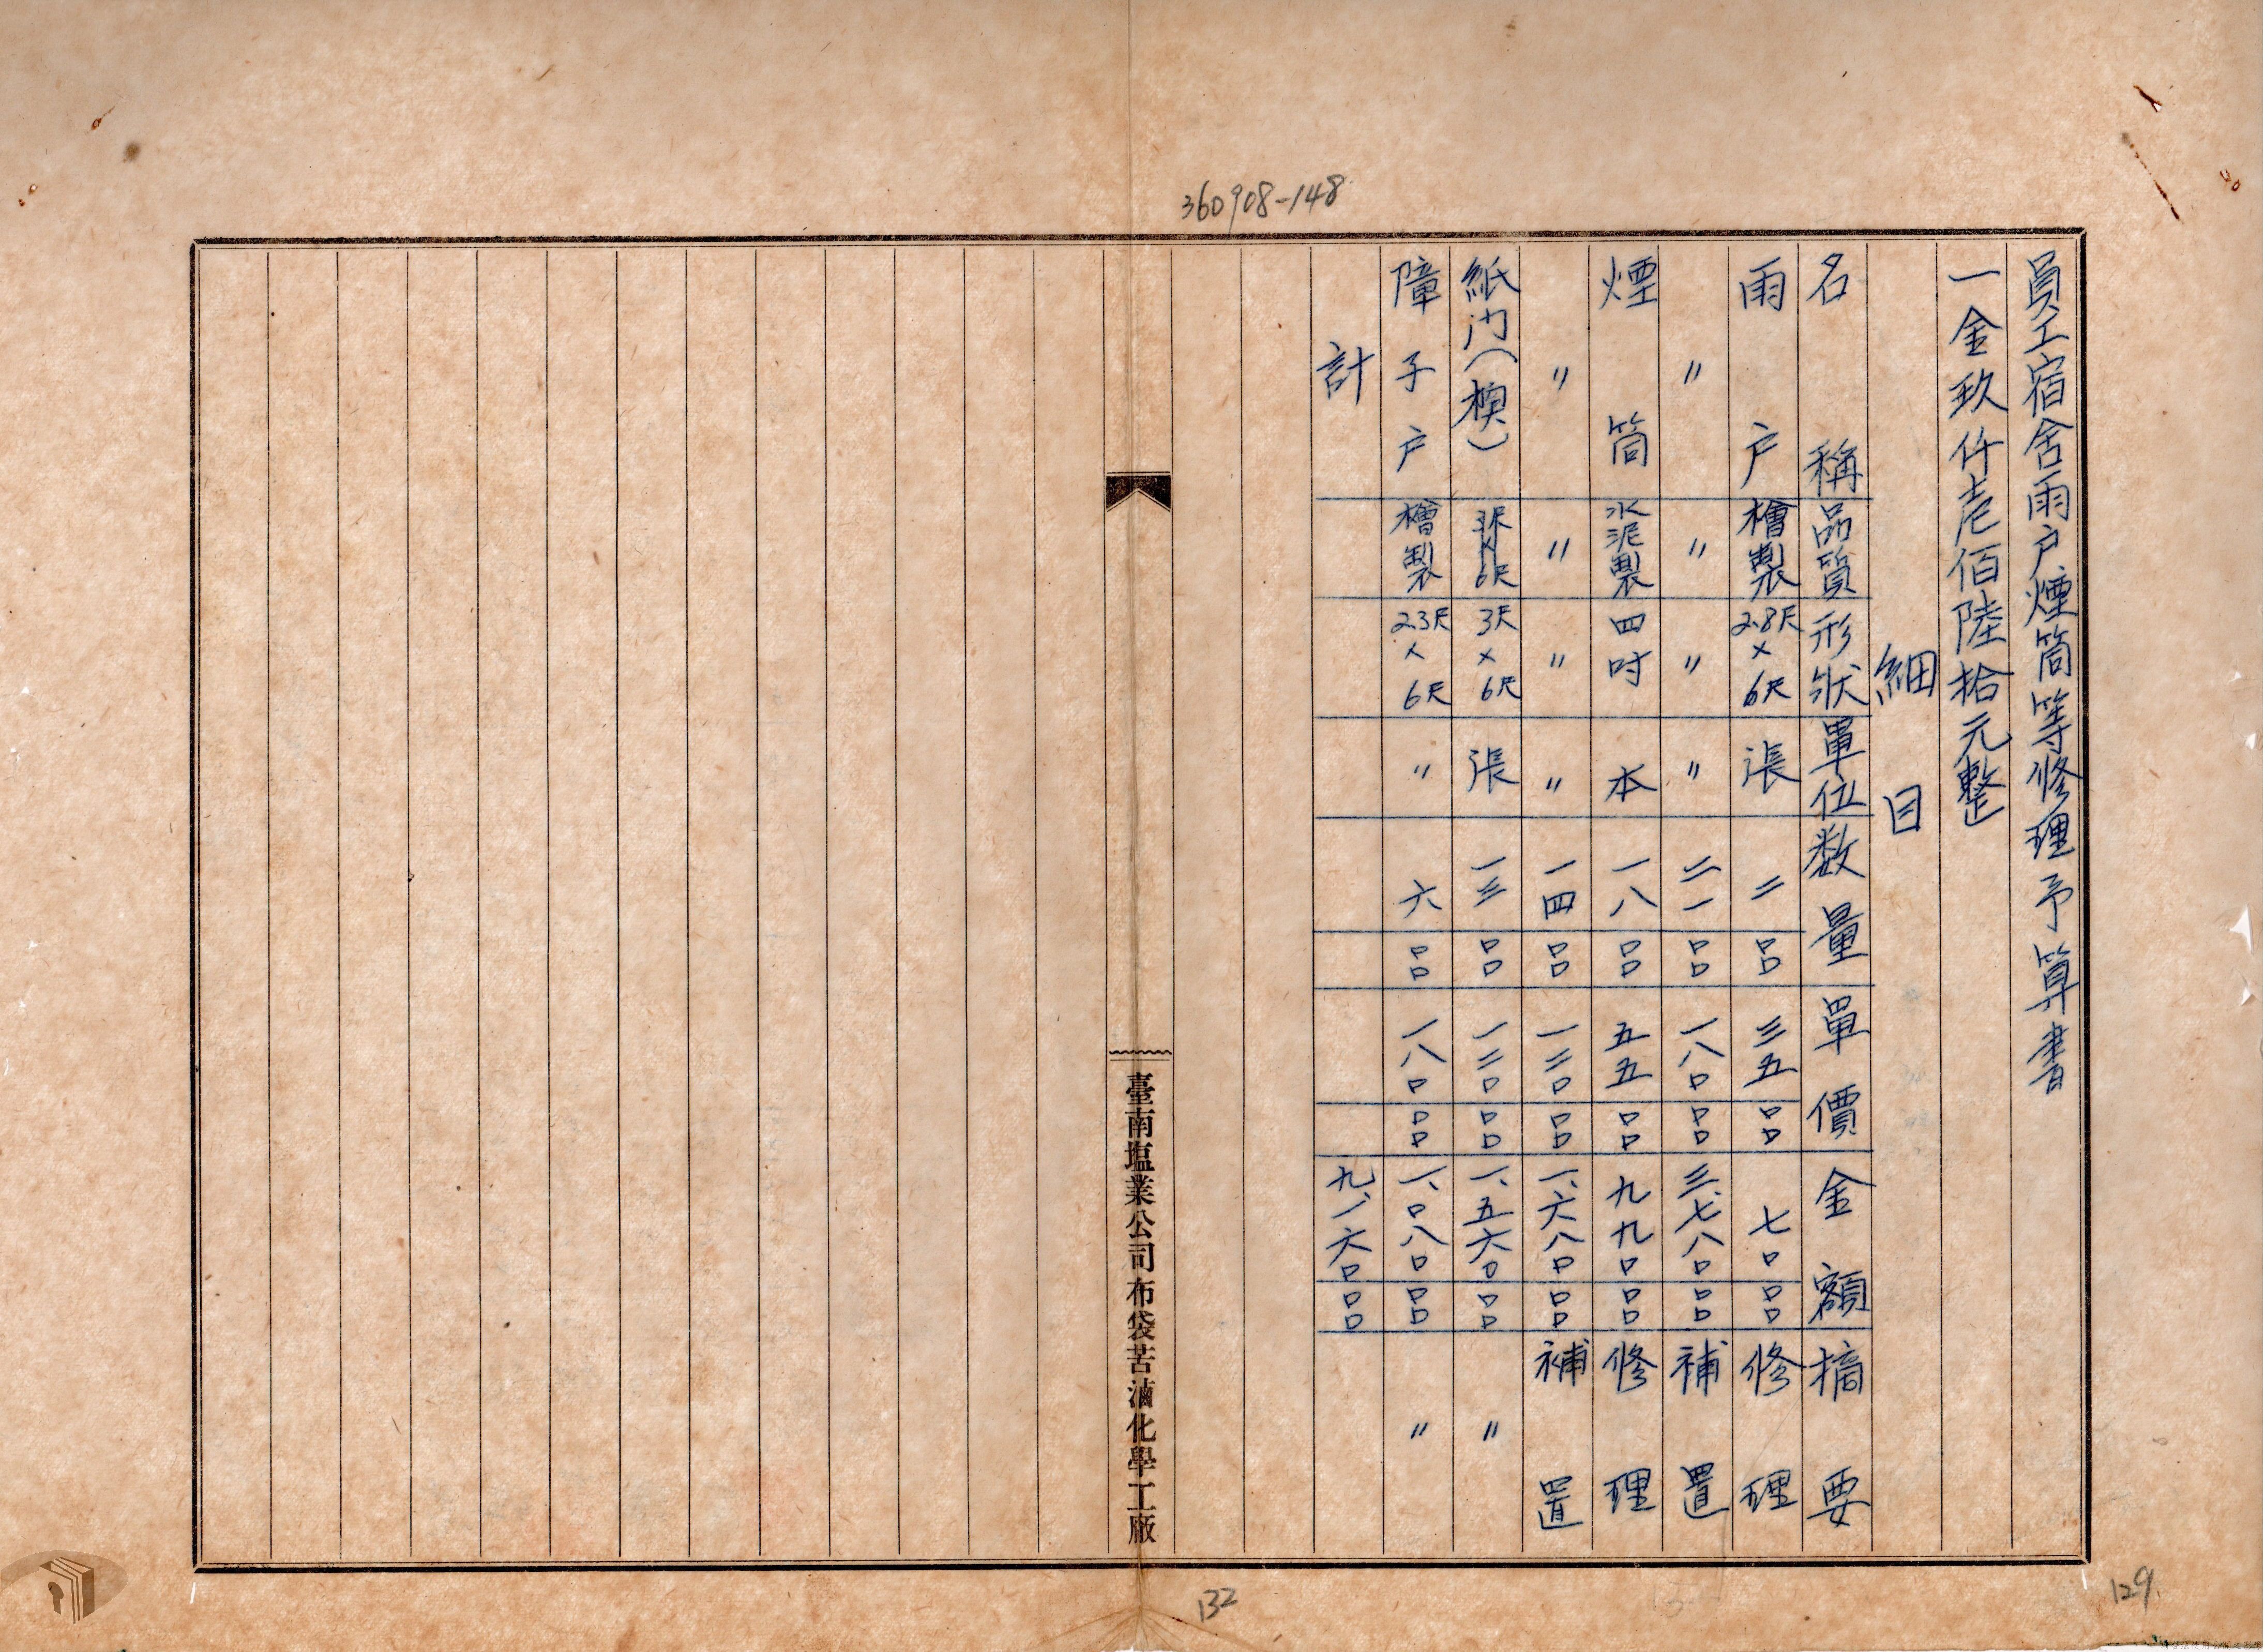 360908-148
員工宿舍雨户煙筒等修理予算書
一金玖仟壱佰陸拾元整
細目
名稱 品質 形狀 單位 数量 單價 金額 摘要
雨户 檜製 2.8尺×6尺 張 二 00 三五 00 七0 00 修理
〃 〃 〃 〃 二一 00 一八0 00 三、七八0 00 補置
煙筒 水泥製 四吋 本 一八 00 五五 00 九九0 00 修理
〃 〃 〃 〃 一四 00 一二0 00 一、六八0 00 補置
紙门(襖) 3尺×6尺 張 一三 00 一二0 00 一、五六0 00 〃
障子户 檜製 2.3尺×6尺 〃 六 00 一八0 00 一、0八0 00 〃
計 九、一六0 00
臺南塩業公司布袋苦滷化學工廠
132
129